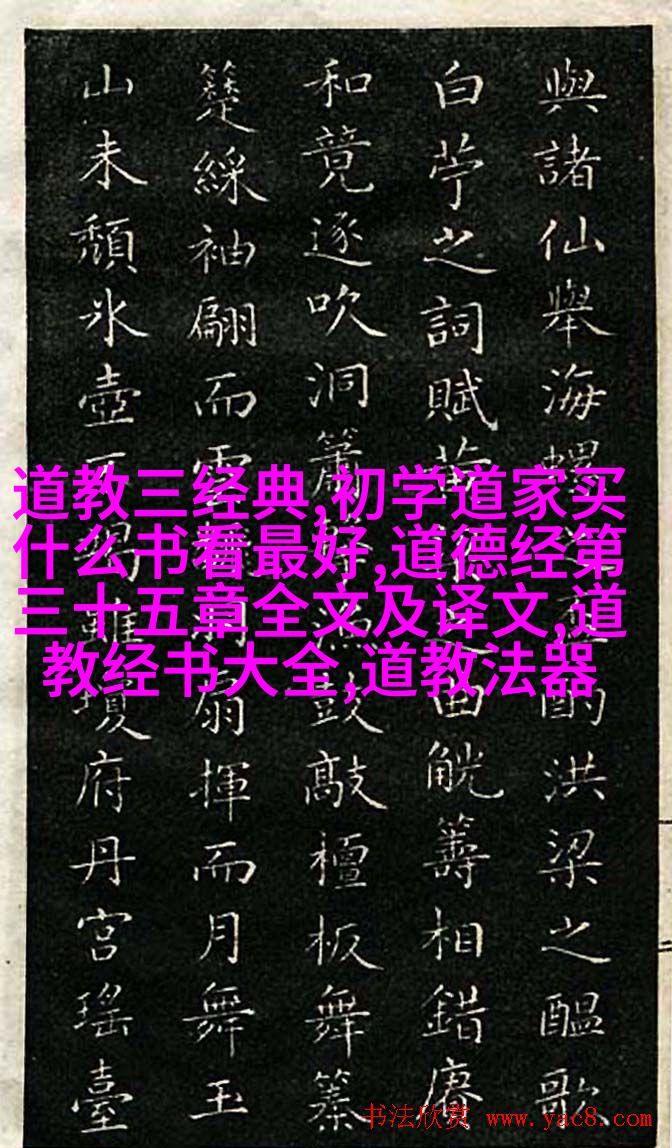 與諸仙舉海螺酌洪梁之醖歌
白苧之詞賦曲觥籌相錯賡
和竟逐吹洞簫鼓敲檀板舞
綵袖翩而雲扇揮而月舞玉
山未頹氷壺雖瓊府丹宮瑤臺
道教三经典,初学道家买
什么书看最好,道德经第
三十五章全文及译文,道
教经书大全,道教法器
书法欣赏 www.yac8.com